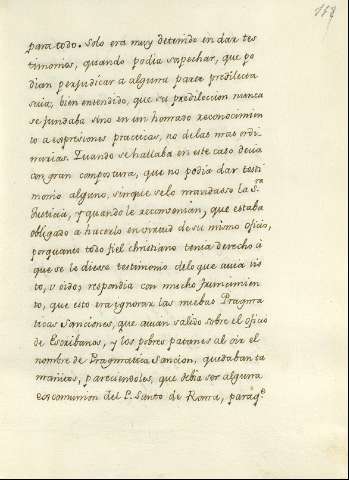 118
para todo. Solo era muy detenido en dar tes
timonios, quando podia sospechar, que po
dian perjudicar a alguna parte predilecta
suia; bien entendido, que su predileccion nunca
se fundaba sino en un honrado reconocimien
to a expresiones practicas, no de las mas ordi
narias. Quando se hallaba en este caso decia
con gran conpostura, que no podia dar testi
monio alguno, sinque selo mandasse la S.ra
Justicia, y quando le reconvenian, que estaba
obligado a hacerlo en virtud de su mismo oficio,
porquanto todo fiel christiano tenia derecho à
que se le diesse testimonio delo que avia vis
to, v oido; respondia con mucho frunzimien
to, que esto era ignorar las nuebas Pragma
ticas Sanciones, que avian salido sobre el oficio
de Escribanos, y los pobres patanes al oir el
nombre de Pragmatica Sancion, quedaban ta
mañitos, pareciendoles, que debia ser alguna
escomunion del P. Santo de Roma, paraq.e